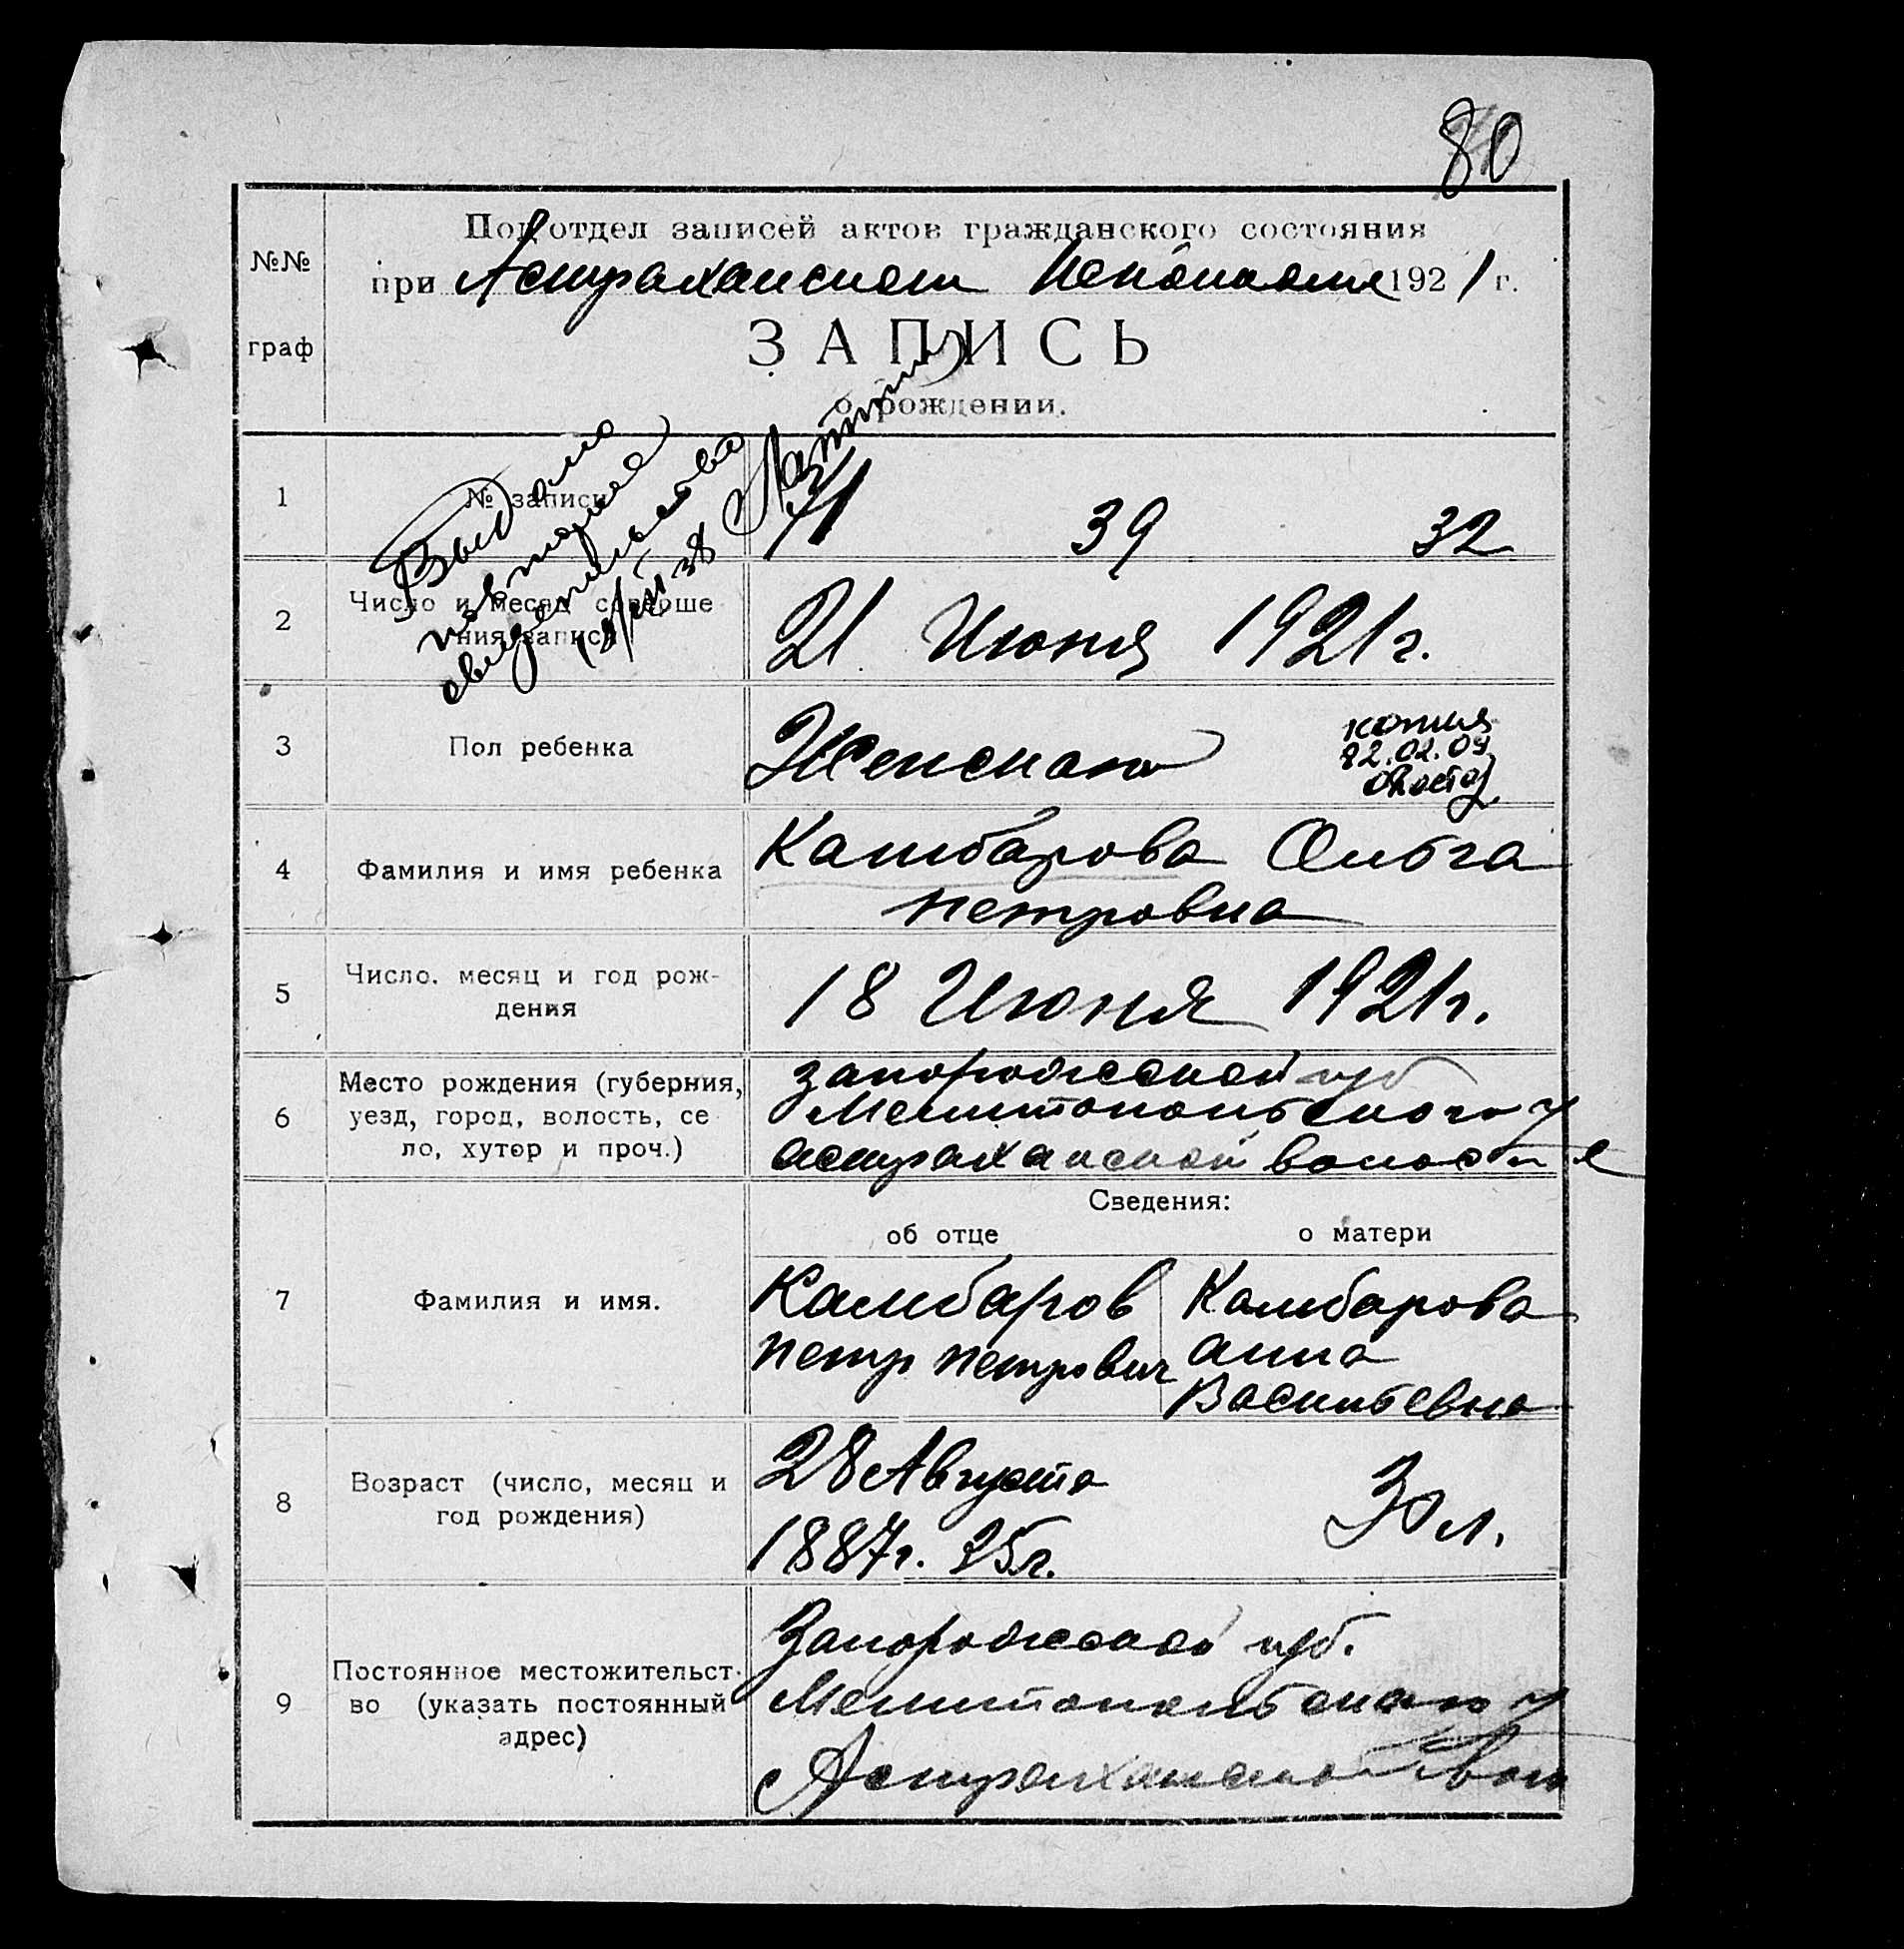 80
№№
граф
Подотдел записей актов гражданского состояния
при Астраханском 1921 г.
ЗАПИСЬ
о рождении.
Выдано
повторное
свидетельство
1 № записи 39 32
2 Число и месяц соверше
ния записи 21 Июня 1921 г.
3 Пол ребенка Женского
копия
4 Фамилия и имя ребенка Камбарова Ольга
Петровна
5 Число. месяц и год рож-
дения 18 Июня 1921 г.
6 Место рождения (губерния,
уезд, город, волость, се
ло, хутор и проч.)
Запорожской губ
Мелитопольского у
Астраханской волости
Сведения:
об отце о матери
7 Фамилия и имя.
Камбаров Камбарова
Петр Петрович Анна
Васильевна
8 Возраст (число, месяц и
год рождения)
28 Августа 30 л.
1887 г.
9 Постоянное местожительст-
во (указать постоянный
адрес)
Запорожской губ.
Мелитопольского у
Астраханской вол